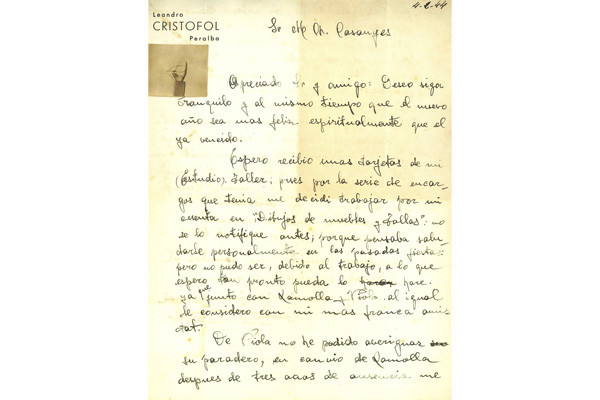 Leandro
CRISTOFOL
Peralba
4-2-44
Sr M. A. Casanyes
Apreciado Sr y amigo: Deseo siga
tranquilo y al mismo tiempo que el nuevo
año sea mas feliz espiritualmente que el
ya vencido.
Espero recibio unas tarjetas de mi
(Estudio). Taller; pues por la serie de encar-
gos que tenia me decidi trabajar por mi
cuenta en "Dibujos de muebles y Tallas": no
se lo notifique antes; porque pensaba salu-
darle personalmente en las pasadas fiestas:
pero no pudo ser, debido al trabajo, a lo que
espero tan pronto pueda lo hare.
ya que junto con Lamolla y Viola al igual
le considero con mi mas franca amis
tat.
De Viola no he podido averiguar
su paradero, en canvio de Lamolla
despues de tres años de ausencia me